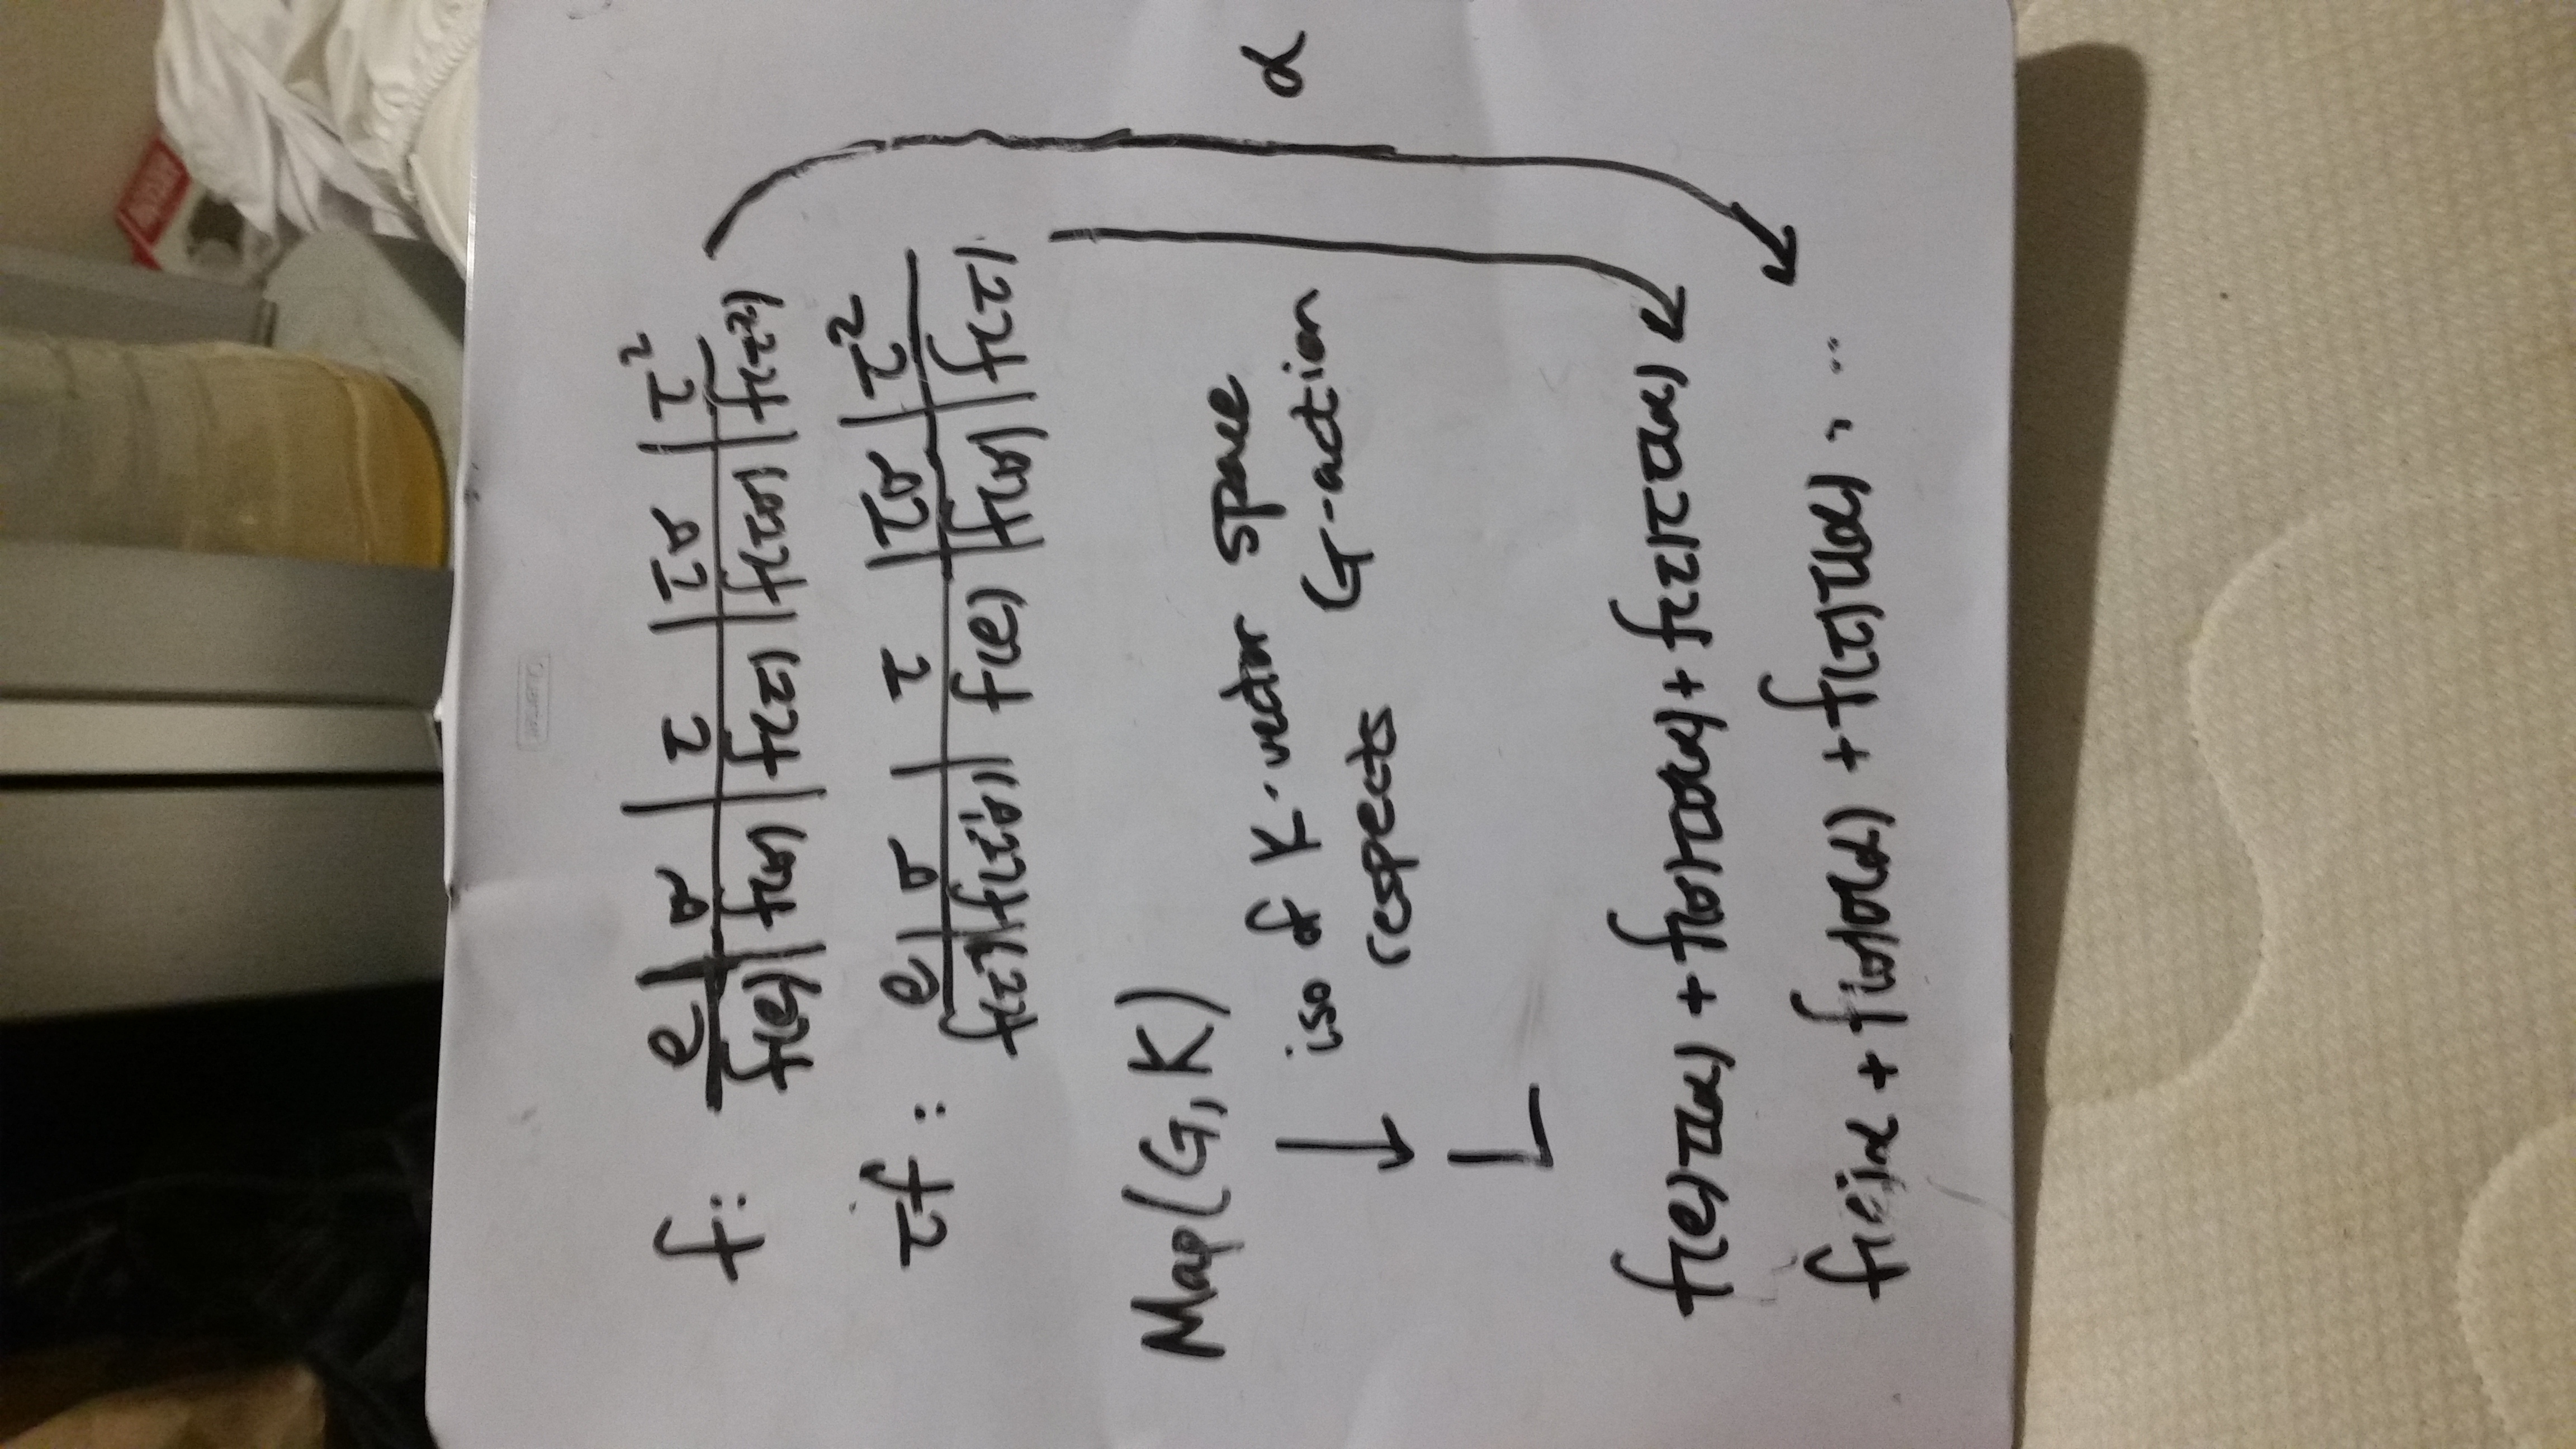 f: e | σ | τ | τσ | τ²
f(e) | f(σ) | f(τ) | f(τσ) | f(τ²)
τf : e | σ | τ | τσ | τ²
f(τ⁻¹) | f(τ⁻¹σ) | f(e) | f(σ) | f(τ)
Map(G, K)
↓ iso of K-vector space
respects G-action
α
L
f(e)τ(α) + f(σ)τσ(α) + f(τ)ττ(α)
f(e)α + f(σ)σ(α) + f(τ)τ(α) , ..